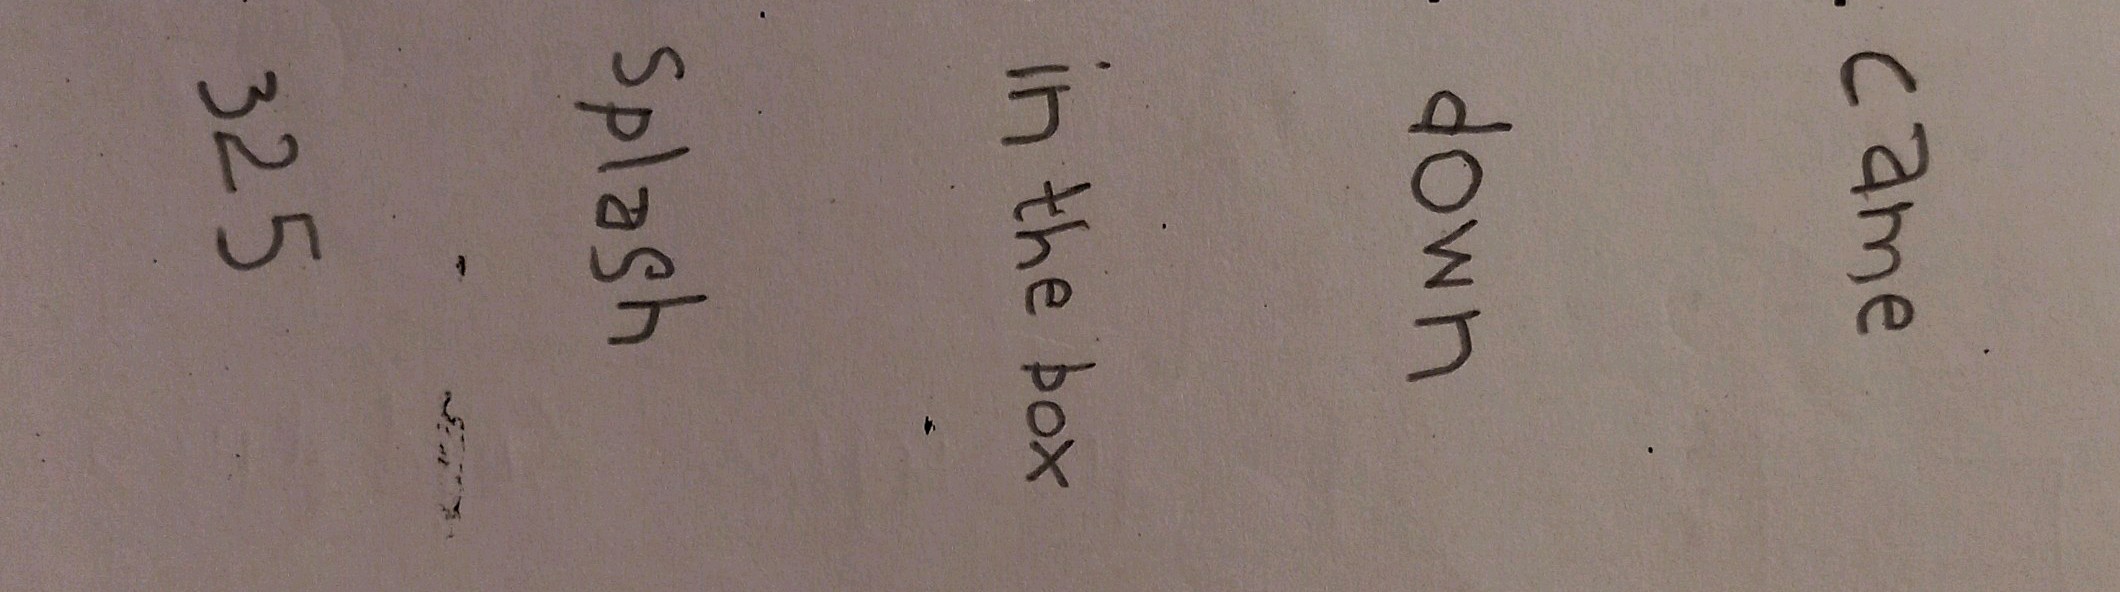 came
down
in the box
Splash
325